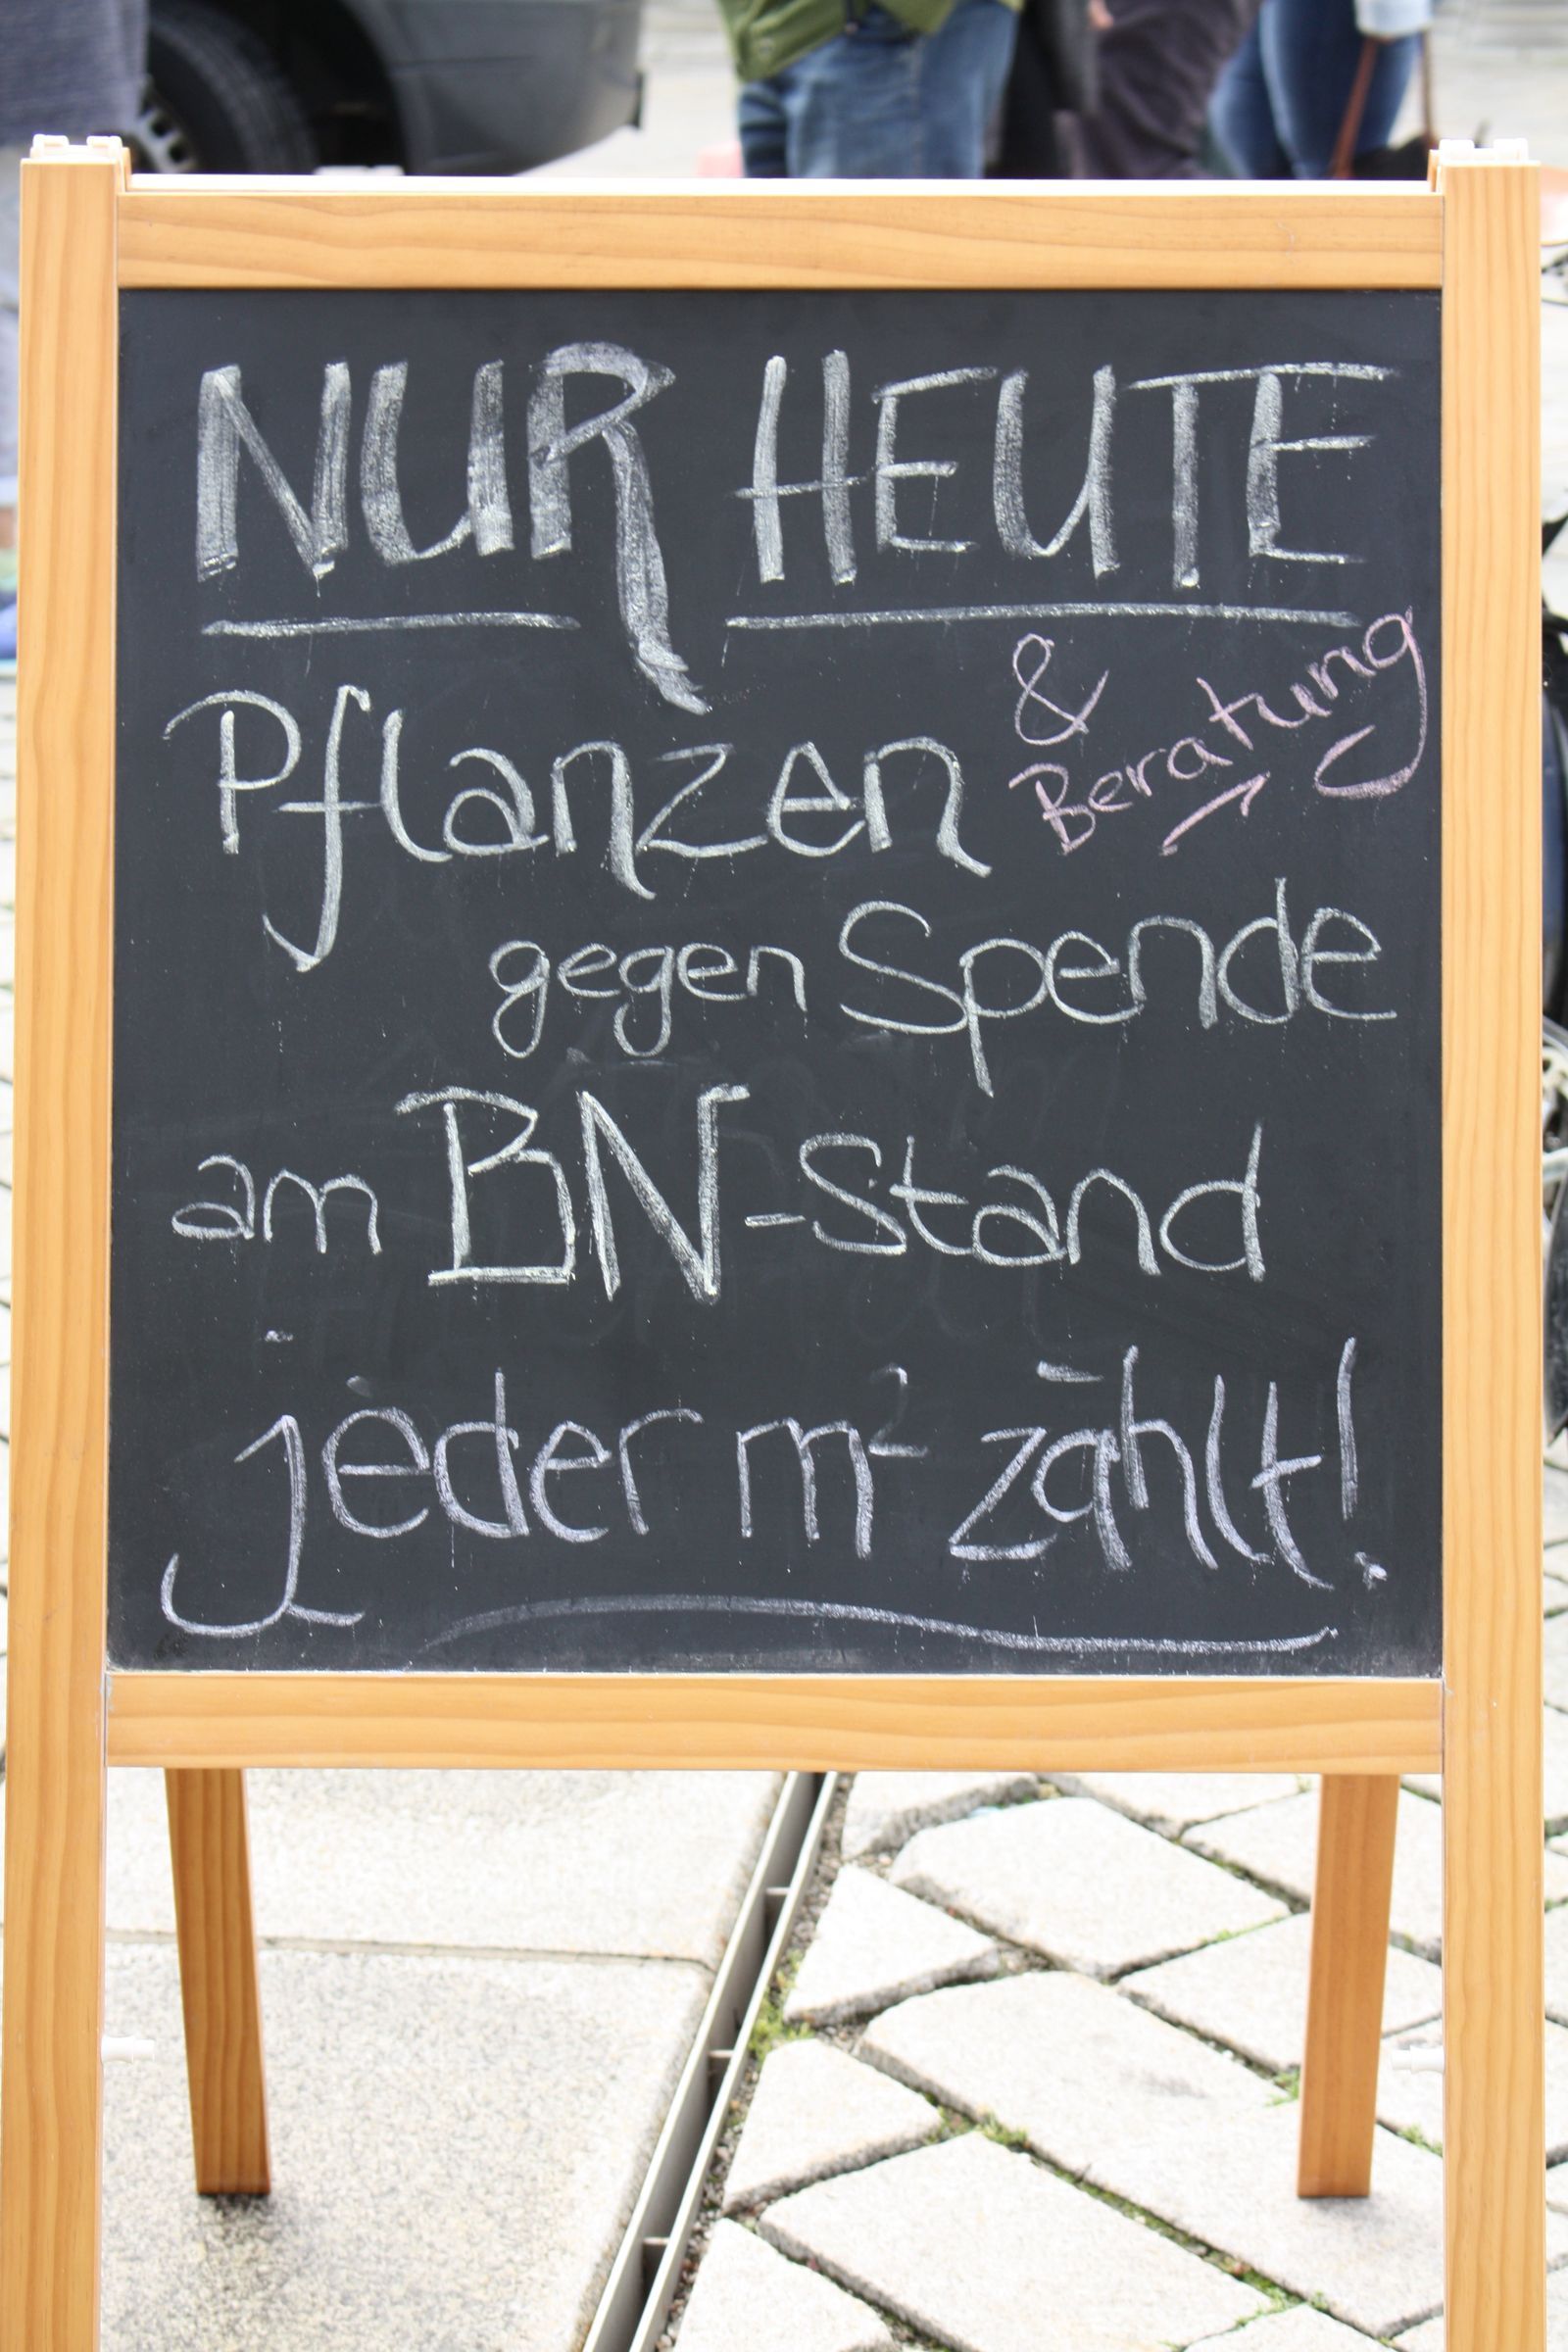 NUR HEUTE
Pflanzen & Beratung
gegen Spende
am BN-Stand
jeder m² zählt!